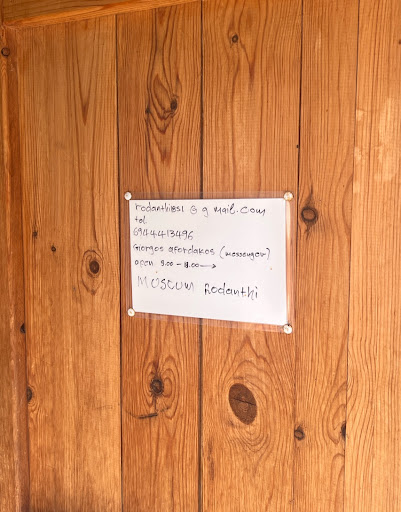 rodanthi851 @ g mail.com
tel
6944413496
Giorgos afordakos (messenger)
open 9.00 - 11.00 →
Moseum Rodanthi